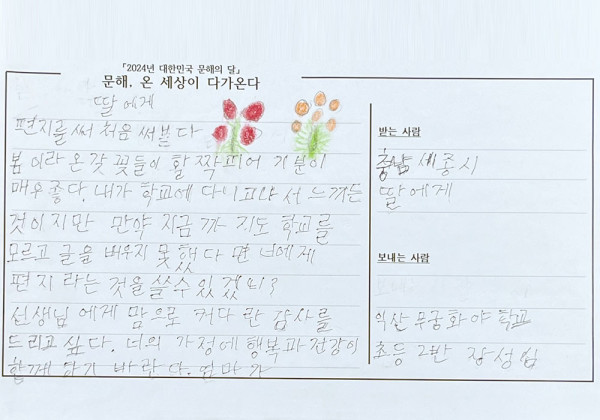 「2024년 대한민국 문해의 달」
문해, 온 세상이 다가온다
딸에게
편지를 써 처음 써본다
봄이라 온갖 꽃들이 활짝 피어 기분이
매우 좋다. 내가 학교에 다니
느끼는
것이지만 만약 지금까지도 학교를
모르고 글을 배우지 못했다면 너에게
편지라는 것을 쓸 수 있겠니?
선생님에게 맘으로 커다란 감사를
드리고 싶다. 너의 가정에 행복과 건강이
함께 하기 바란다. 엄마가
받는 사람
충남 세종시
딸에게
보내는 사람
익산 무궁화야학교
초등 2반 장성임